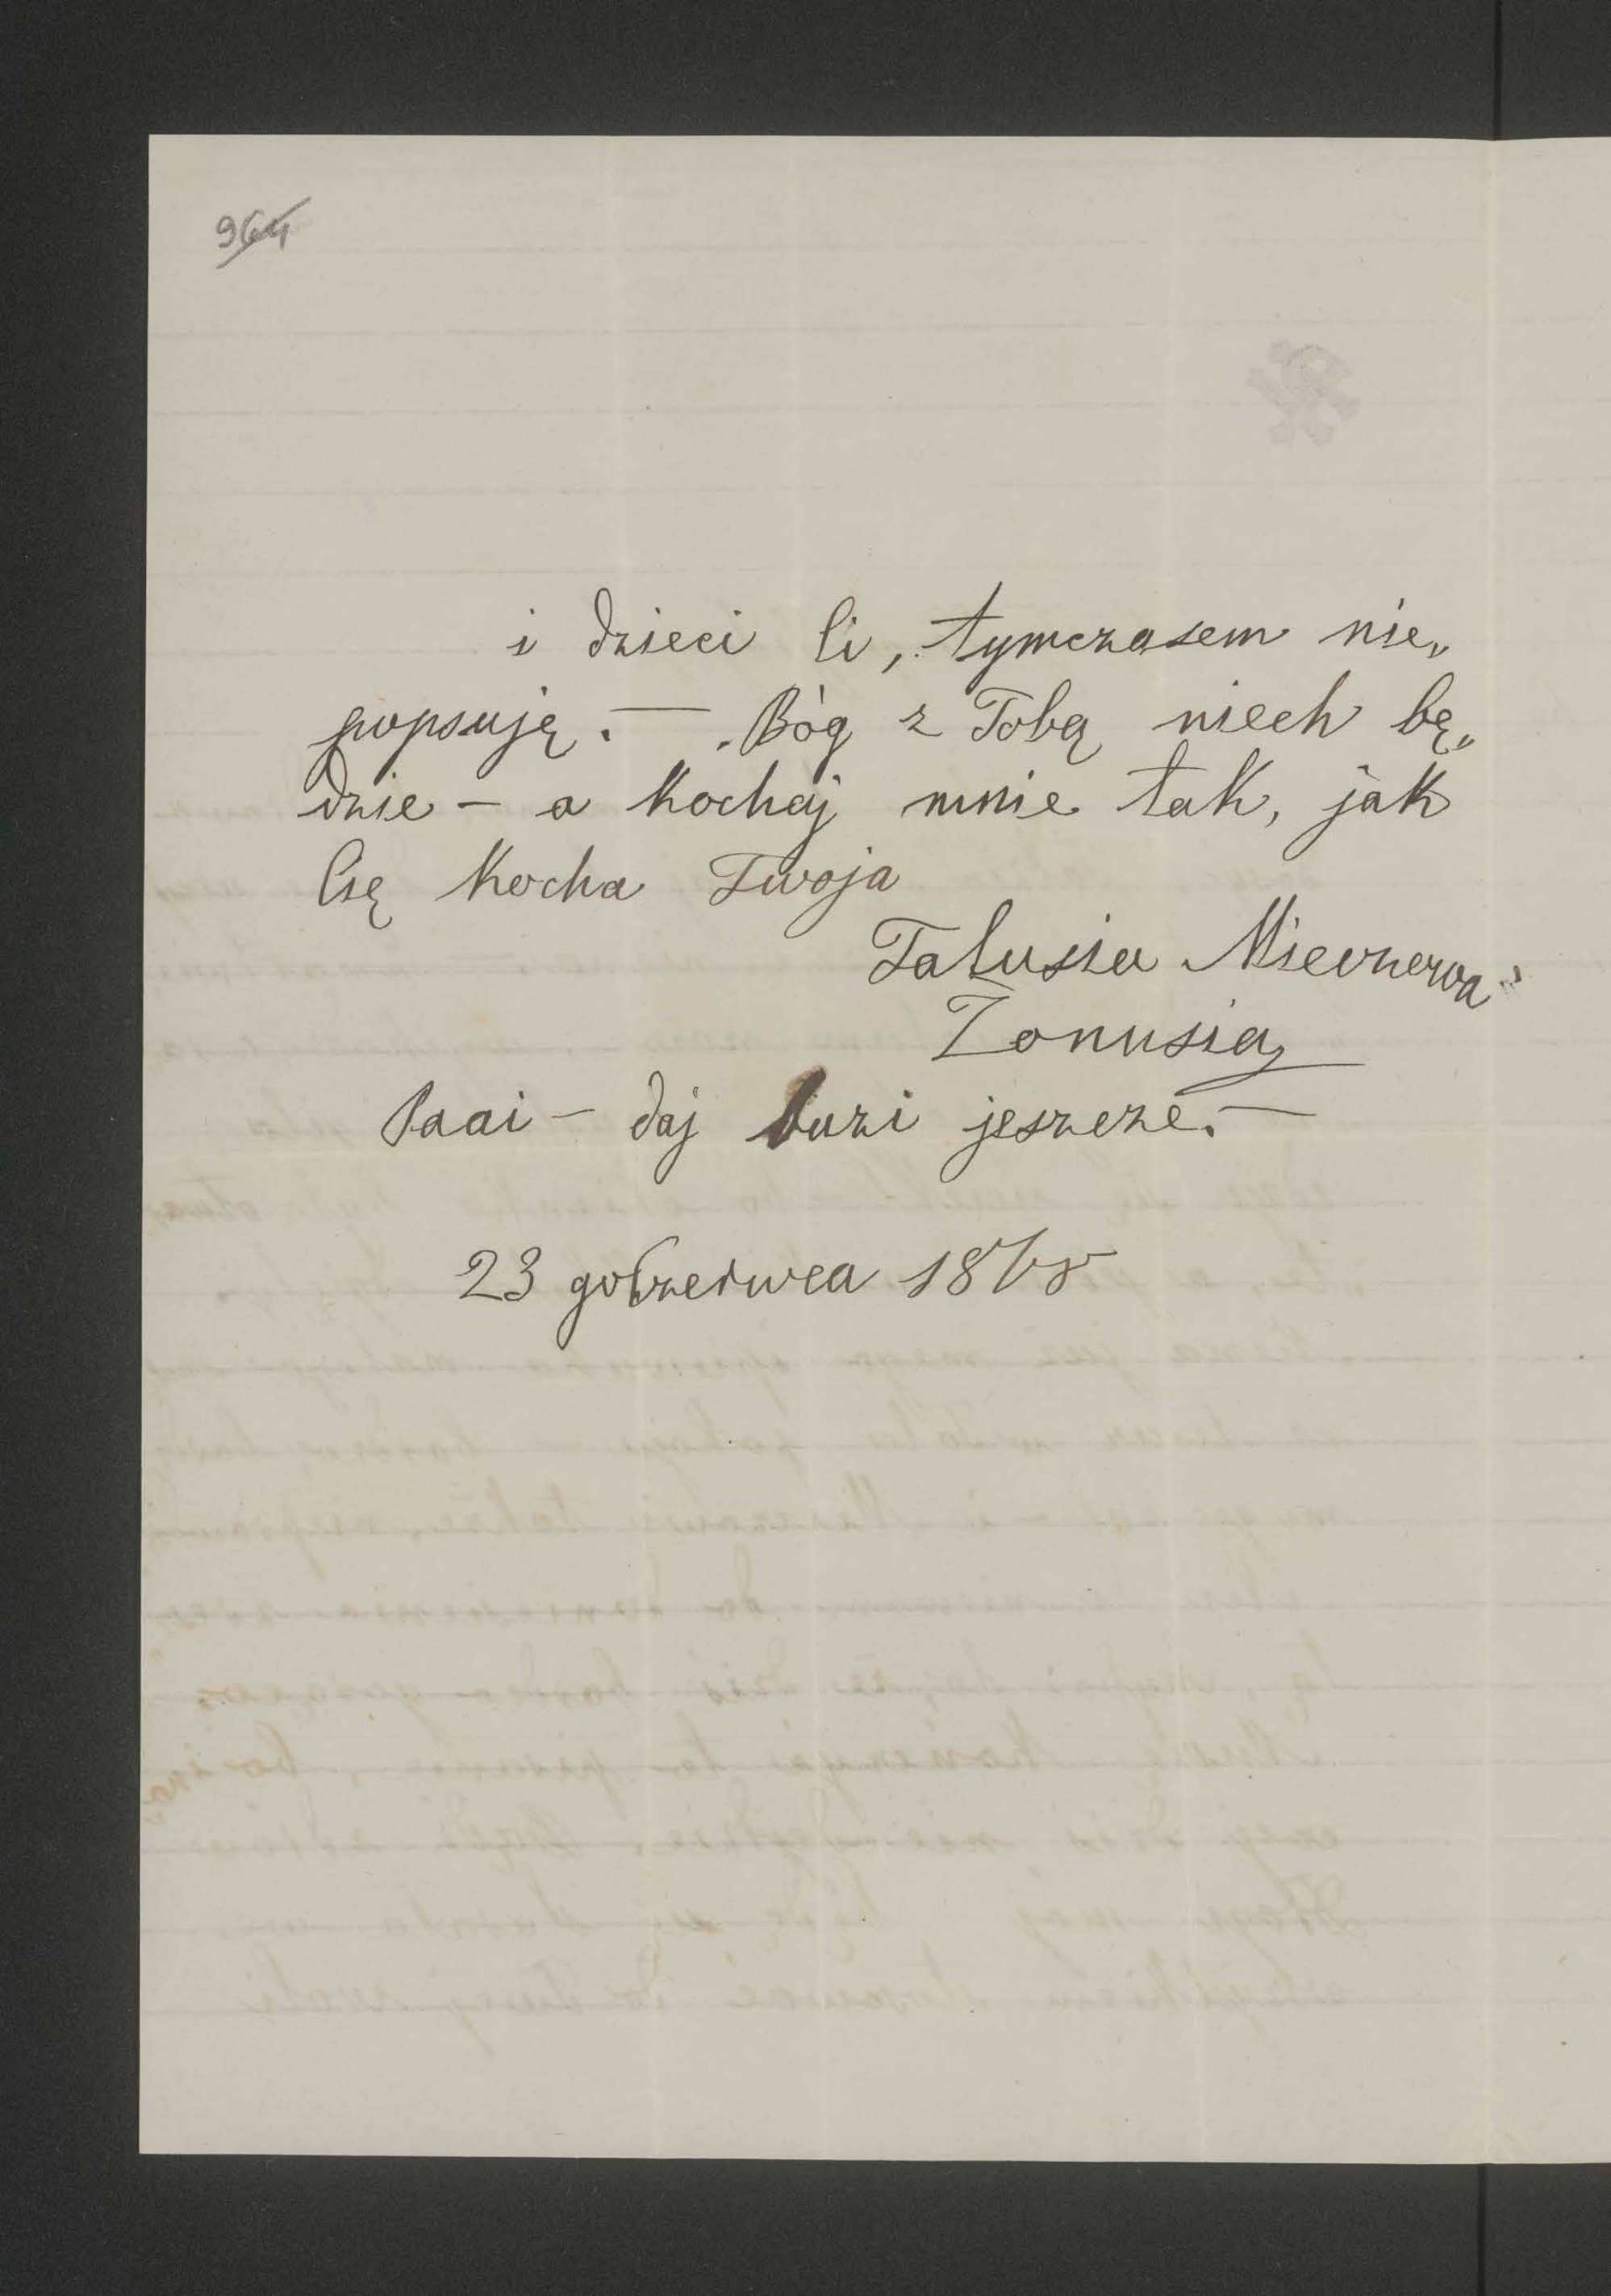 964
i dzieci Ci, tymczasem nie„
popsuję. — Bóg z Tobą niech bę„
dzie – a kochaj mnie tak, jak
Cię kocha Twoja
Talusia Mieczerwa
Żonusia
Paai – daj buzi jeszcze. —
23 go Czerwca 18